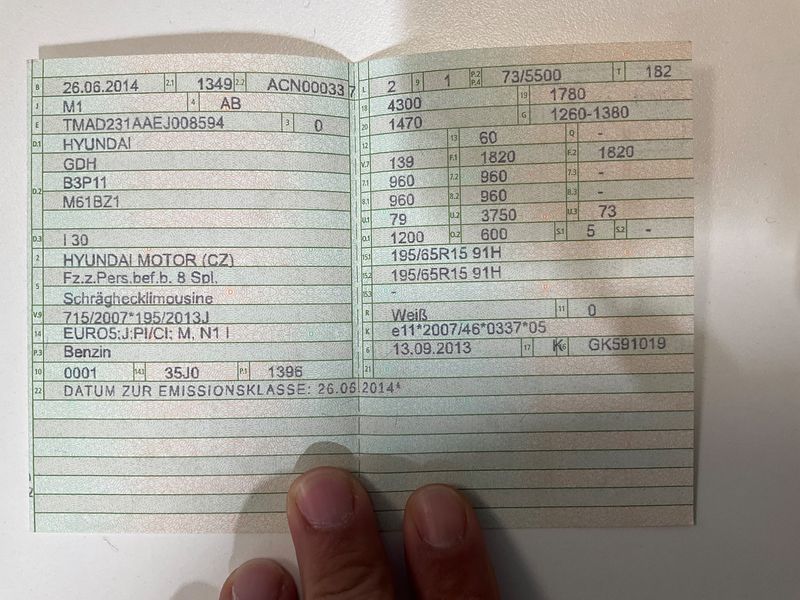 B 26.06.2014 2.1 1349 2.2 ACN00033 7
J M1 4 AB
E TMAD231AAEJ008594 3 0
D.1 HYUNDAI
GDH
D.2 B3P11
M61BZ1
D.3 I 30
2 HYUNDAI MOTOR (CZ)
5 Fz.z.Pers.bef.b. 8 Spl.
Schräghecklimousine
V.9 715/2007*195/2013J
14 EURO5;J:PI/CI; M, N1 I
P.3 Benzin
10 0001 14.1 35J0 P.1 1396
22 DATUM ZUR EMISSIONSKLASSE: 26.06.2014*
L 2 9 1 P.2 P.4 73/5500 T 182
18 4300 19 1780
20 1470 G 1260-1380
12 13 60 Q -
V.7 139 F.1 1820 F.2 1820
7.1 960 7.2 960 7.3 -
8.1 960 8.2 960 8.3 -
U.1 79 U.2 3750 U.3 73
O.1 1200 O.2 600 S.1 5 S.2 -
15.1 195/65R15 91H
15.2 195/65R15 91H
15.3 -
R Weiß 11 0
K e11*2007/46*0337*05
6 13.09.2013 17 K 16 GK591019
21